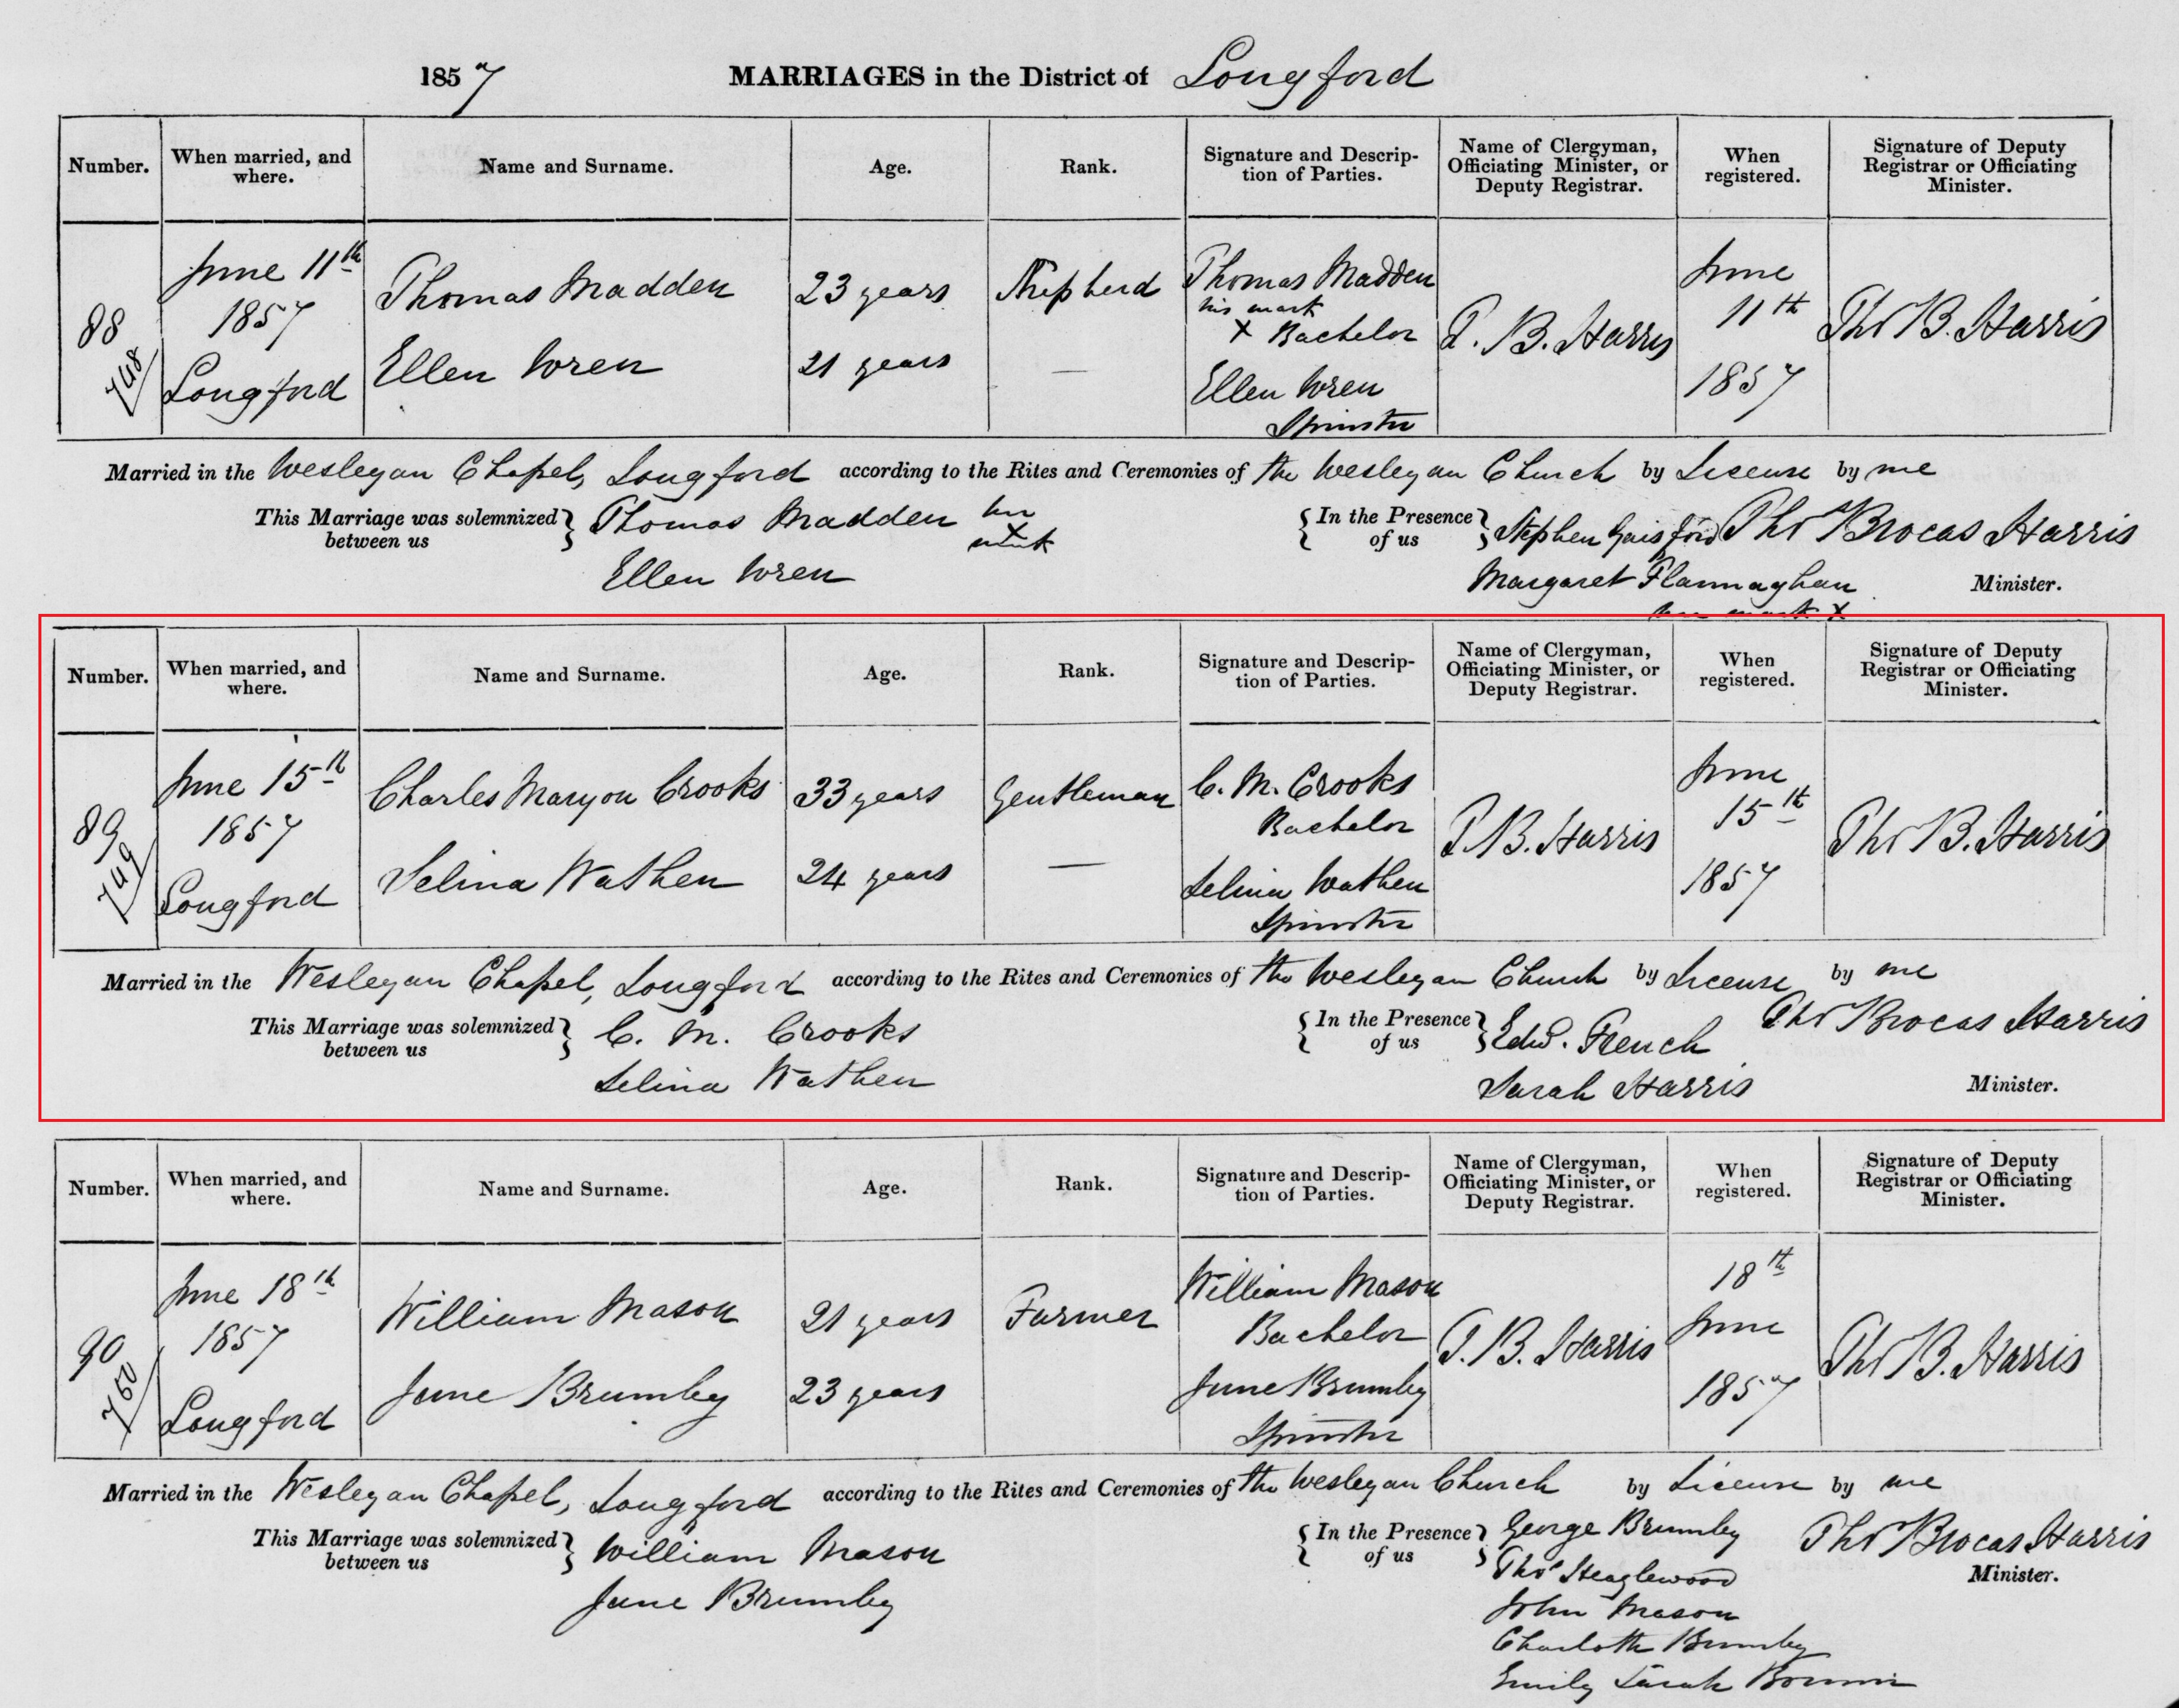 1857 MARRIAGES in the District of Longford
Number. When married, and where. Name and Surname. Age. Rank. Signature and Description of Parties. Name of Clergyman, Officiating Minister, or Deputy Registrar. When registered. Signature of Deputy Registrar or Officiating Minister.
88
748
June 11th
1857
Longford
Thomas Madden 23 years Shepherd
Ellen Wren 21 years —
Thomas Madden
his mark
X Bachelor
Ellen Wren
Spinster
T. B. Harris
June
11th
1857
Thos B. Harris
Married in the Wesleyan Chapel, Longford according to the Rites and Ceremonies of the Wesleyan Church by License by me
This Marriage was solemnized between us } Thomas Madden his
X
mark
Ellen Wren
{ In the Presence of us } Stephen Gaisford Thos Brocas Harris
Margaret Flannaghan Minister.
her mark X
Number. When married, and where. Name and Surname. Age. Rank. Signature and Description of Parties. Name of Clergyman, Officiating Minister, or Deputy Registrar. When registered. Signature of Deputy Registrar or Officiating Minister.
89
749
June 15th
1857
Longford
Charles Maryon Crooks 33 years Gentleman
Selina Wathen 24 years —
C. M. Crooks
Bachelor
Selina Wathen
Spinster
T. B. Harris
June
15th
1857
Thos B. Harris
Married in the Wesleyan Chapel, Longford according to the Rites and Ceremonies of the Wesleyan Church by License by me
This Marriage was solemnized between us } C. M. Crooks
Selina Wathen
{ In the Presence of us } Edwd. French Thos Brocas Harris
Sarah Harris Minister.
Number. When married, and where. Name and Surname. Age. Rank. Signature and Description of Parties. Name of Clergyman, Officiating Minister, or Deputy Registrar. When registered. Signature of Deputy Registrar or Officiating Minister.
90
750
June 18th
1857
Longford
William Mason 21 years Farmer
Jane Brumby 23 years
William Mason
Bachelor
Jane Brumby
Spinster
T. B. Harris
18th
June
1857
Thos B. Harris
Married in the Wesleyan Chapel, Longford according to the Rites and Ceremonies of the Wesleyan Church by License by me
This Marriage was solemnized between us } William Mason
Jane Brumby
{ In the Presence of us } George Brumby Thos Brocas Harris
Thos Heaglewood Minister.
John Mason
Charlotte Brumby
Emily Sarah